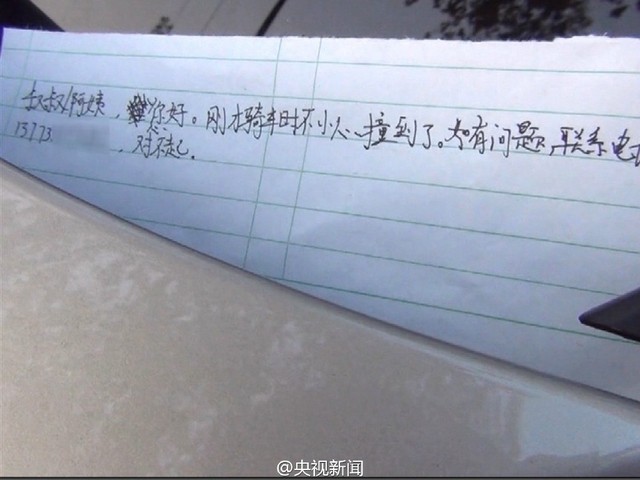 叔叔/阿姨，您好。刚才骑车时不小心撞到了。如有问题，联系电话
13773
，对不起.
@央视新闻